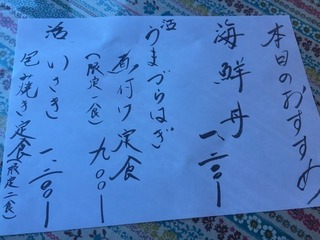 本日のおすすめ
海鮮丼 一、二〇〇ー
活 うまづらはぎ
煮付け定食
(限定一食) 九〇〇ー
活 いさき 一、二〇〇ー
塩焼き定食(限定二食)